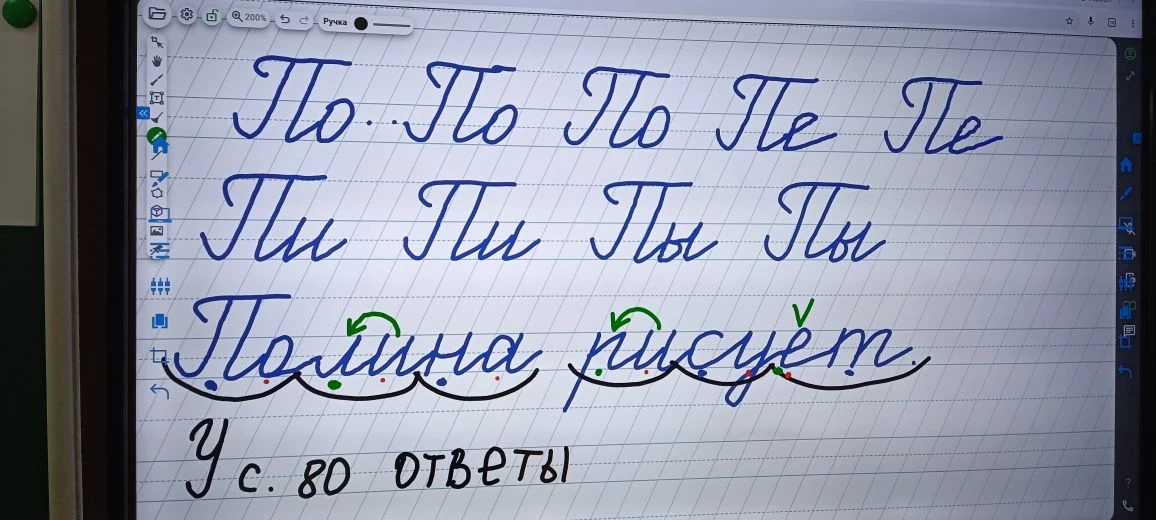 200% Ручка
По..По По Пе Пе
Пи Пи Пы Пы
Полина рисует.
У с. 80 ответы